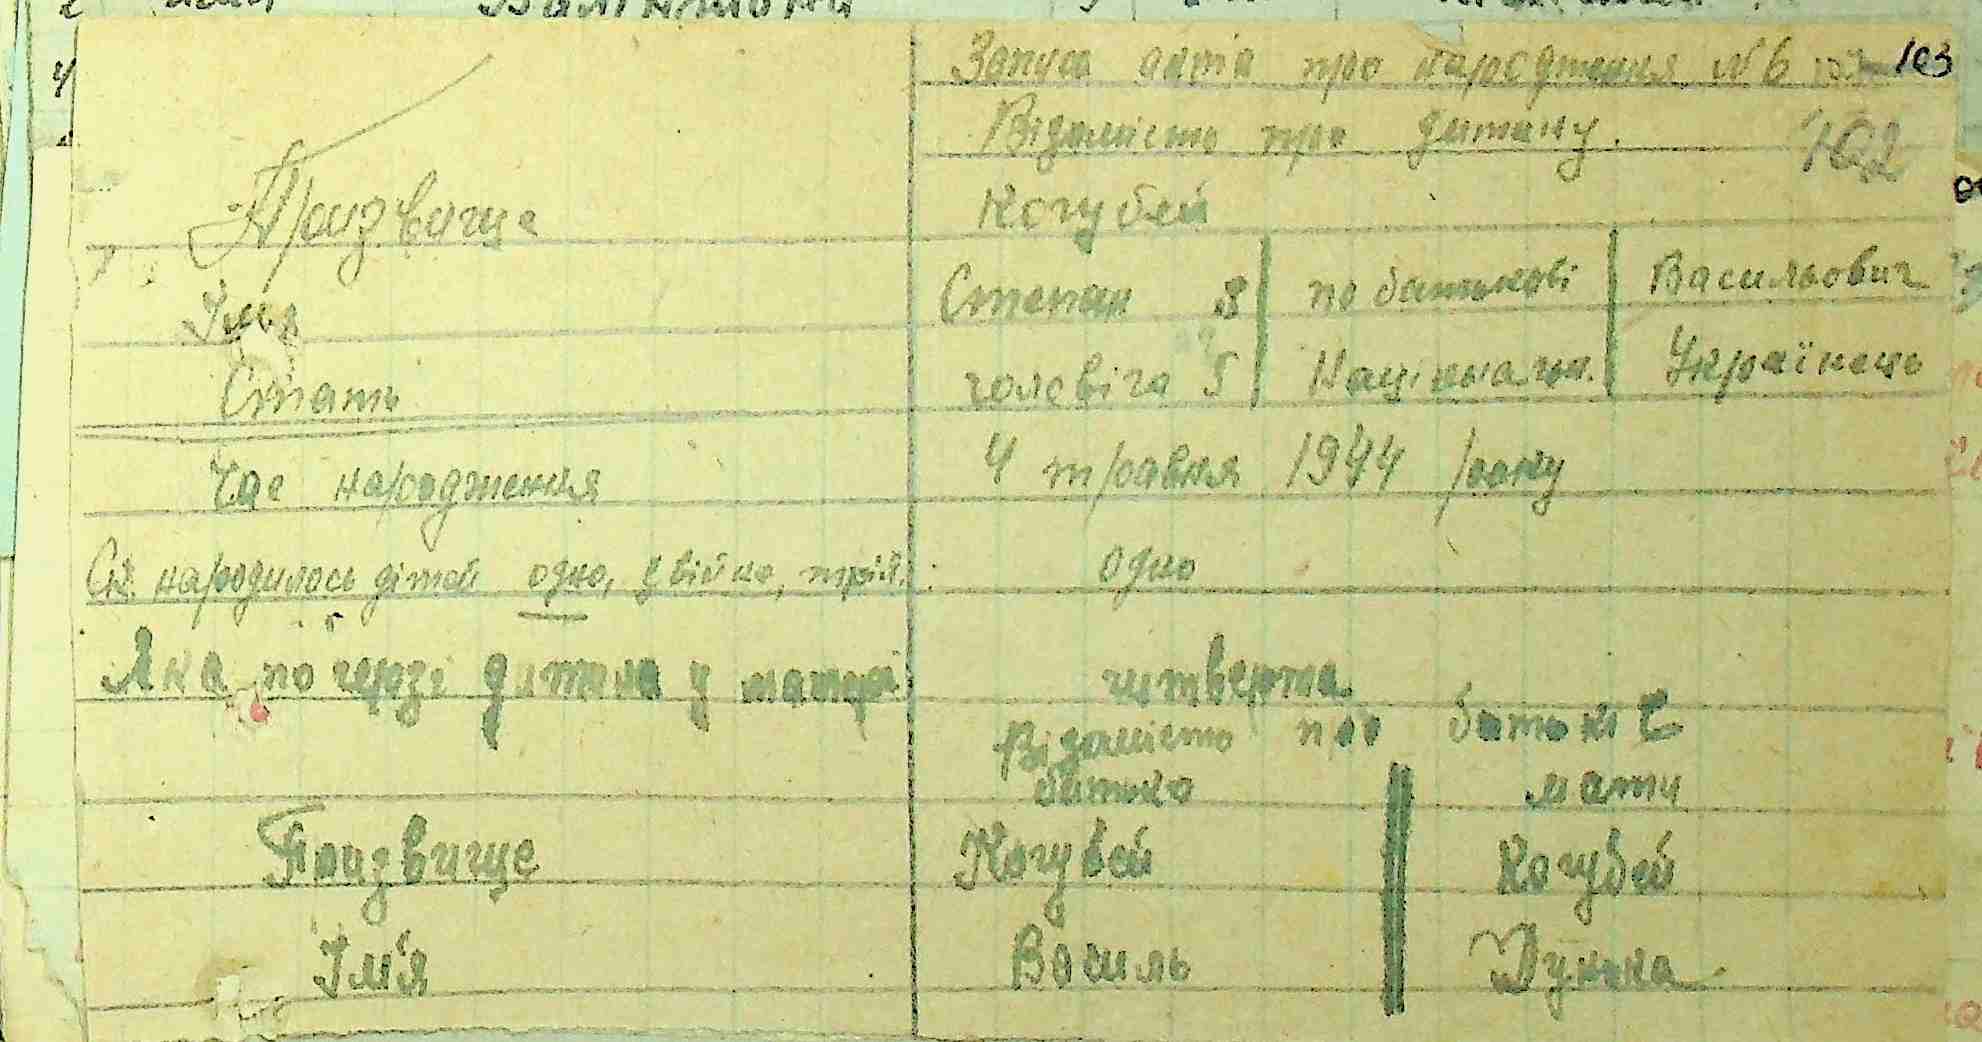 Запис акта про народження №6 103
Відомість про дитину. 102
Призвище Когубей
Імья Степан по батькові Васильович
Стать чоловіча Націнальн. Українець
Час народження 4 травня 1944 року
Ск. народилось дітей одно, двійко, трій. одно
Яка по черзі дитина у матері читверта
Відомість про батьків
батько мати
Призвище Когубей Когубей
Ім'я Василь Дунька